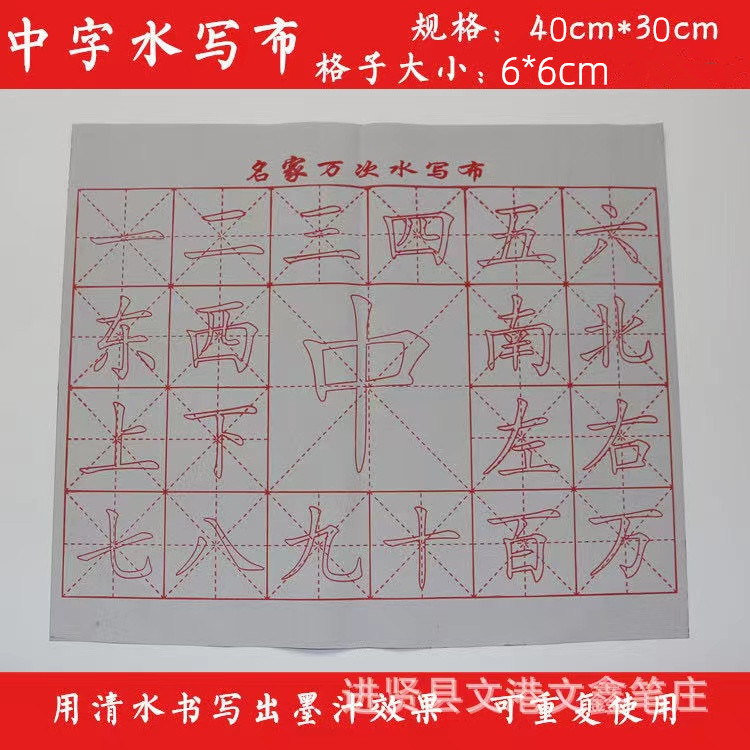 中字水写布
规格：40cm*30cm
格子大小：6*6cm
名家万次水写布
一 二 三 四 五 六
东 西 中 南 北
上 下 左 右
七 八 九 十 百 万
进贤县文港文鑫笔庄
用清水书写出墨汁效果 可重复使用